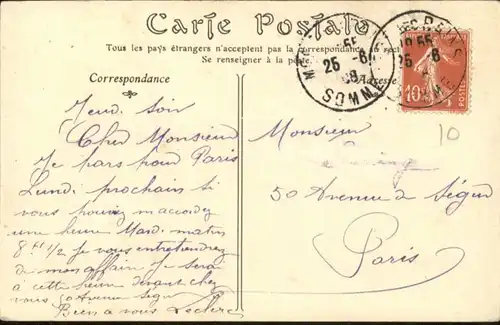 Carte Postale
Tous les pays étrangers n'acceptent pas la correspondance au
Se renseigner à la
Correspondance
Adresse
25 -6
SOMME
10
POSTES
10
Jeudi soir
Cher Monsieur
Je pars pour Paris
Lundi prochain si
vous pouvez m'accordez
une heure Mardi matin
8h 1/2 je vous entretiendrez
de mon affaire je serai
à cette heure devant chez
vous 50 Avenue Ségur
Bien à vous Leclerc
Monsieur
50 Avenue de Ségur
Paris